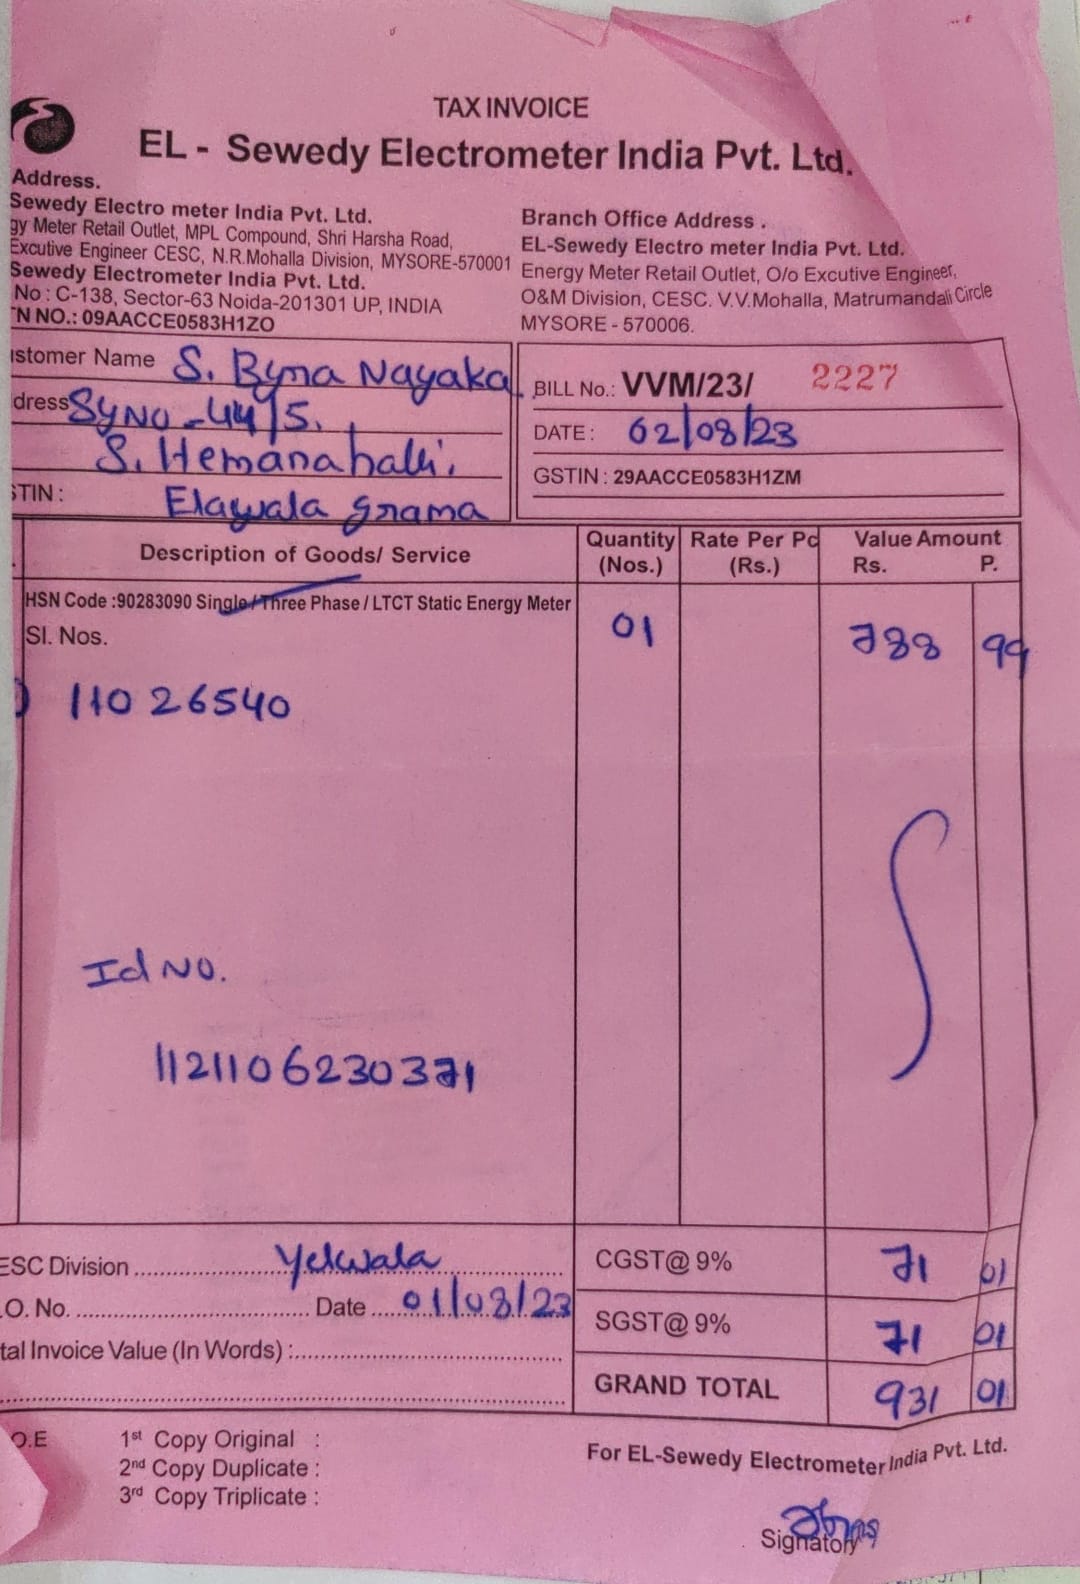 TAX INVOICE
EL - Sewedy Electrometer India Pvt. Ltd.
Address.
Sewedy Electro meter India Pvt. Ltd.
gy Meter Retail Outlet, MPL Compound, Shri Harsha Road,
Excutive Engineer CESC, N.R.Mohalla Division, MYSORE-570001
Sewedy Electrometer India Pvt. Ltd.
No : C-138, Sector-63 Noida-201301 UP, INDIA
N NO.: 09AACCE0583H1ZO
Branch Office Address .
EL-Sewedy Electro meter India Pvt. Ltd.
Energy Meter Retail Outlet, O/o Excutive Engineer,
O&M Division, CESC. V.V.Mohalla, Matrumandali Circle
MYSORE - 570006.
stomer Name S. Byna Nayaka
dress SyNo - 44/5.
S. Hemanahalli.
STIN : Elawala grama
BILL No.: VVM/23/ 2227
DATE : 02/08/23
GSTIN : 29AACCE0583H1ZM
Description of Goods/ Service Quantity (Nos.) Rate Per Pc (Rs.) Value Amount Rs. P.
HSN Code :90283090 Single/Three Phase / LTCT Static Energy Meter 01 788 99
Sl. Nos.
) 11026540
Id No.
1121106230371
ESC Division Yelwala CGST@ 9% 71 01
.O. No. Date 01/08/23 SGST@ 9% 71 01
tal Invoice Value (In Words) :
GRAND TOTAL 931 01
O.E 1st Copy Original :
2nd Copy Duplicate :
3rd Copy Triplicate :
For EL-Sewedy Electrometer India Pvt. Ltd.
Signatory